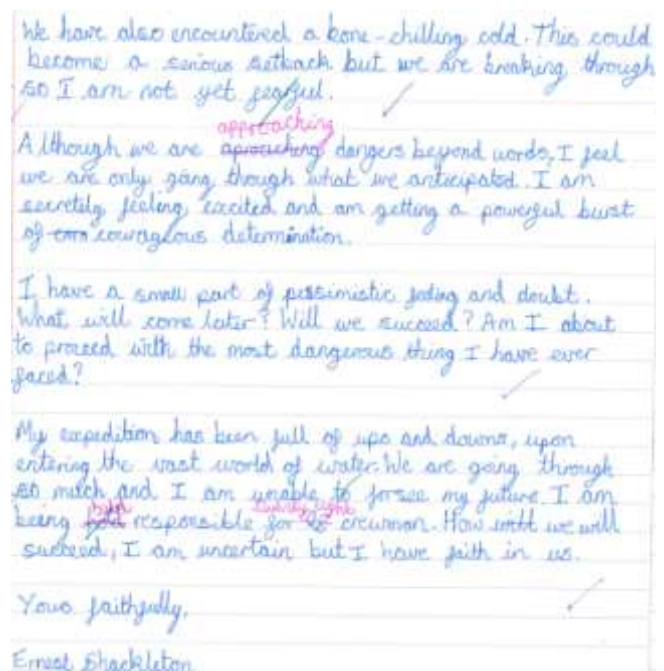 We have also encountered a bone-chilling cold. This could
become a serious setback but we are breaking through
so I am not yet fearful.
approaching
Although we are aproaching dangers beyond words, I feel
we are only going though what we anticipated. I am
secretly feeling excited and am getting a powerful burst
of courageous determination.
I have a small part of pessimistic and doubt.
What will come later? Will we succeed? Am I about
to proceed with the most dangerous thing I have ever
faced?
My expedition has been full of ups and downs, upon
entering the vast world of water. We are going through
so much and I am unable to forsee my future. I am
held twenty eight
being responsible for crewman. How we will
succeed, I am uncertain but I have faith in us.
Yours faithfully,
Ernest Shackleton